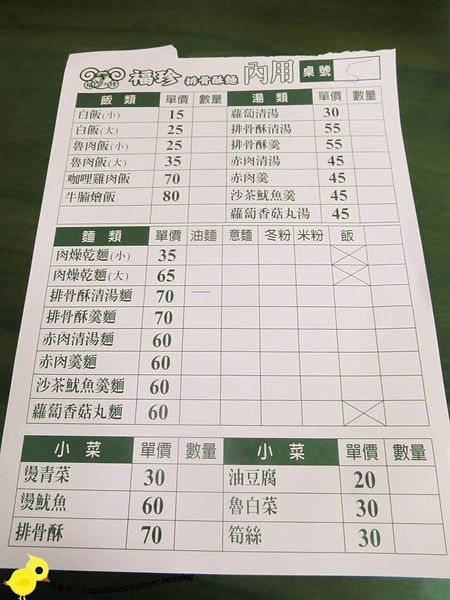 福珍 排骨酥麵 內用 桌號 5
飯類 單價 數量 湯類 單價 數量
白飯(小) 15 蘿蔔清湯 30
白飯(大) 25 排骨酥清湯 55
魯肉飯(小) 25 排骨酥羹 55
魯肉飯(大) 35 赤肉清湯 45
咖哩雞肉飯 70 赤肉羹 45
牛腩燴飯 80 沙茶魷魚羹 45
蘿蔔香菇丸湯 45
麵類 單價 油麵 意麵 冬粉 米粉 飯
肉燥乾麵(小) 35
肉燥乾麵(大) 65
排骨酥清湯麵 70
排骨酥羹麵 70
赤肉清湯麵 60
赤肉羹麵 60
沙茶魷魚羹麵 60
蘿蔔香菇丸麵 60
小菜 單價 數量 小菜 單價 數量
燙青菜 30 油豆腐 20
燙魷魚 60 魯白菜 30
排骨酥 70 筍絲 30